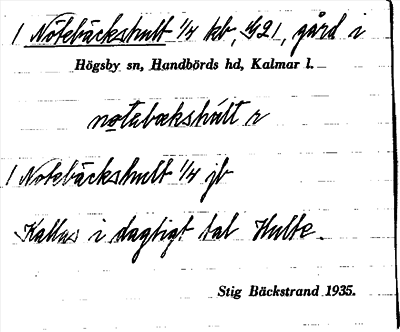 1 Nötebäckshult 1/4 kb, 421, gård i
Högsby sn, Handbörds hd, Kalmar l.
notebækshùlt r
1 Nötebäckshult 1/4 jb
Kallas i dagligt tal Hulte.
Stig Bäckstrand 1935.